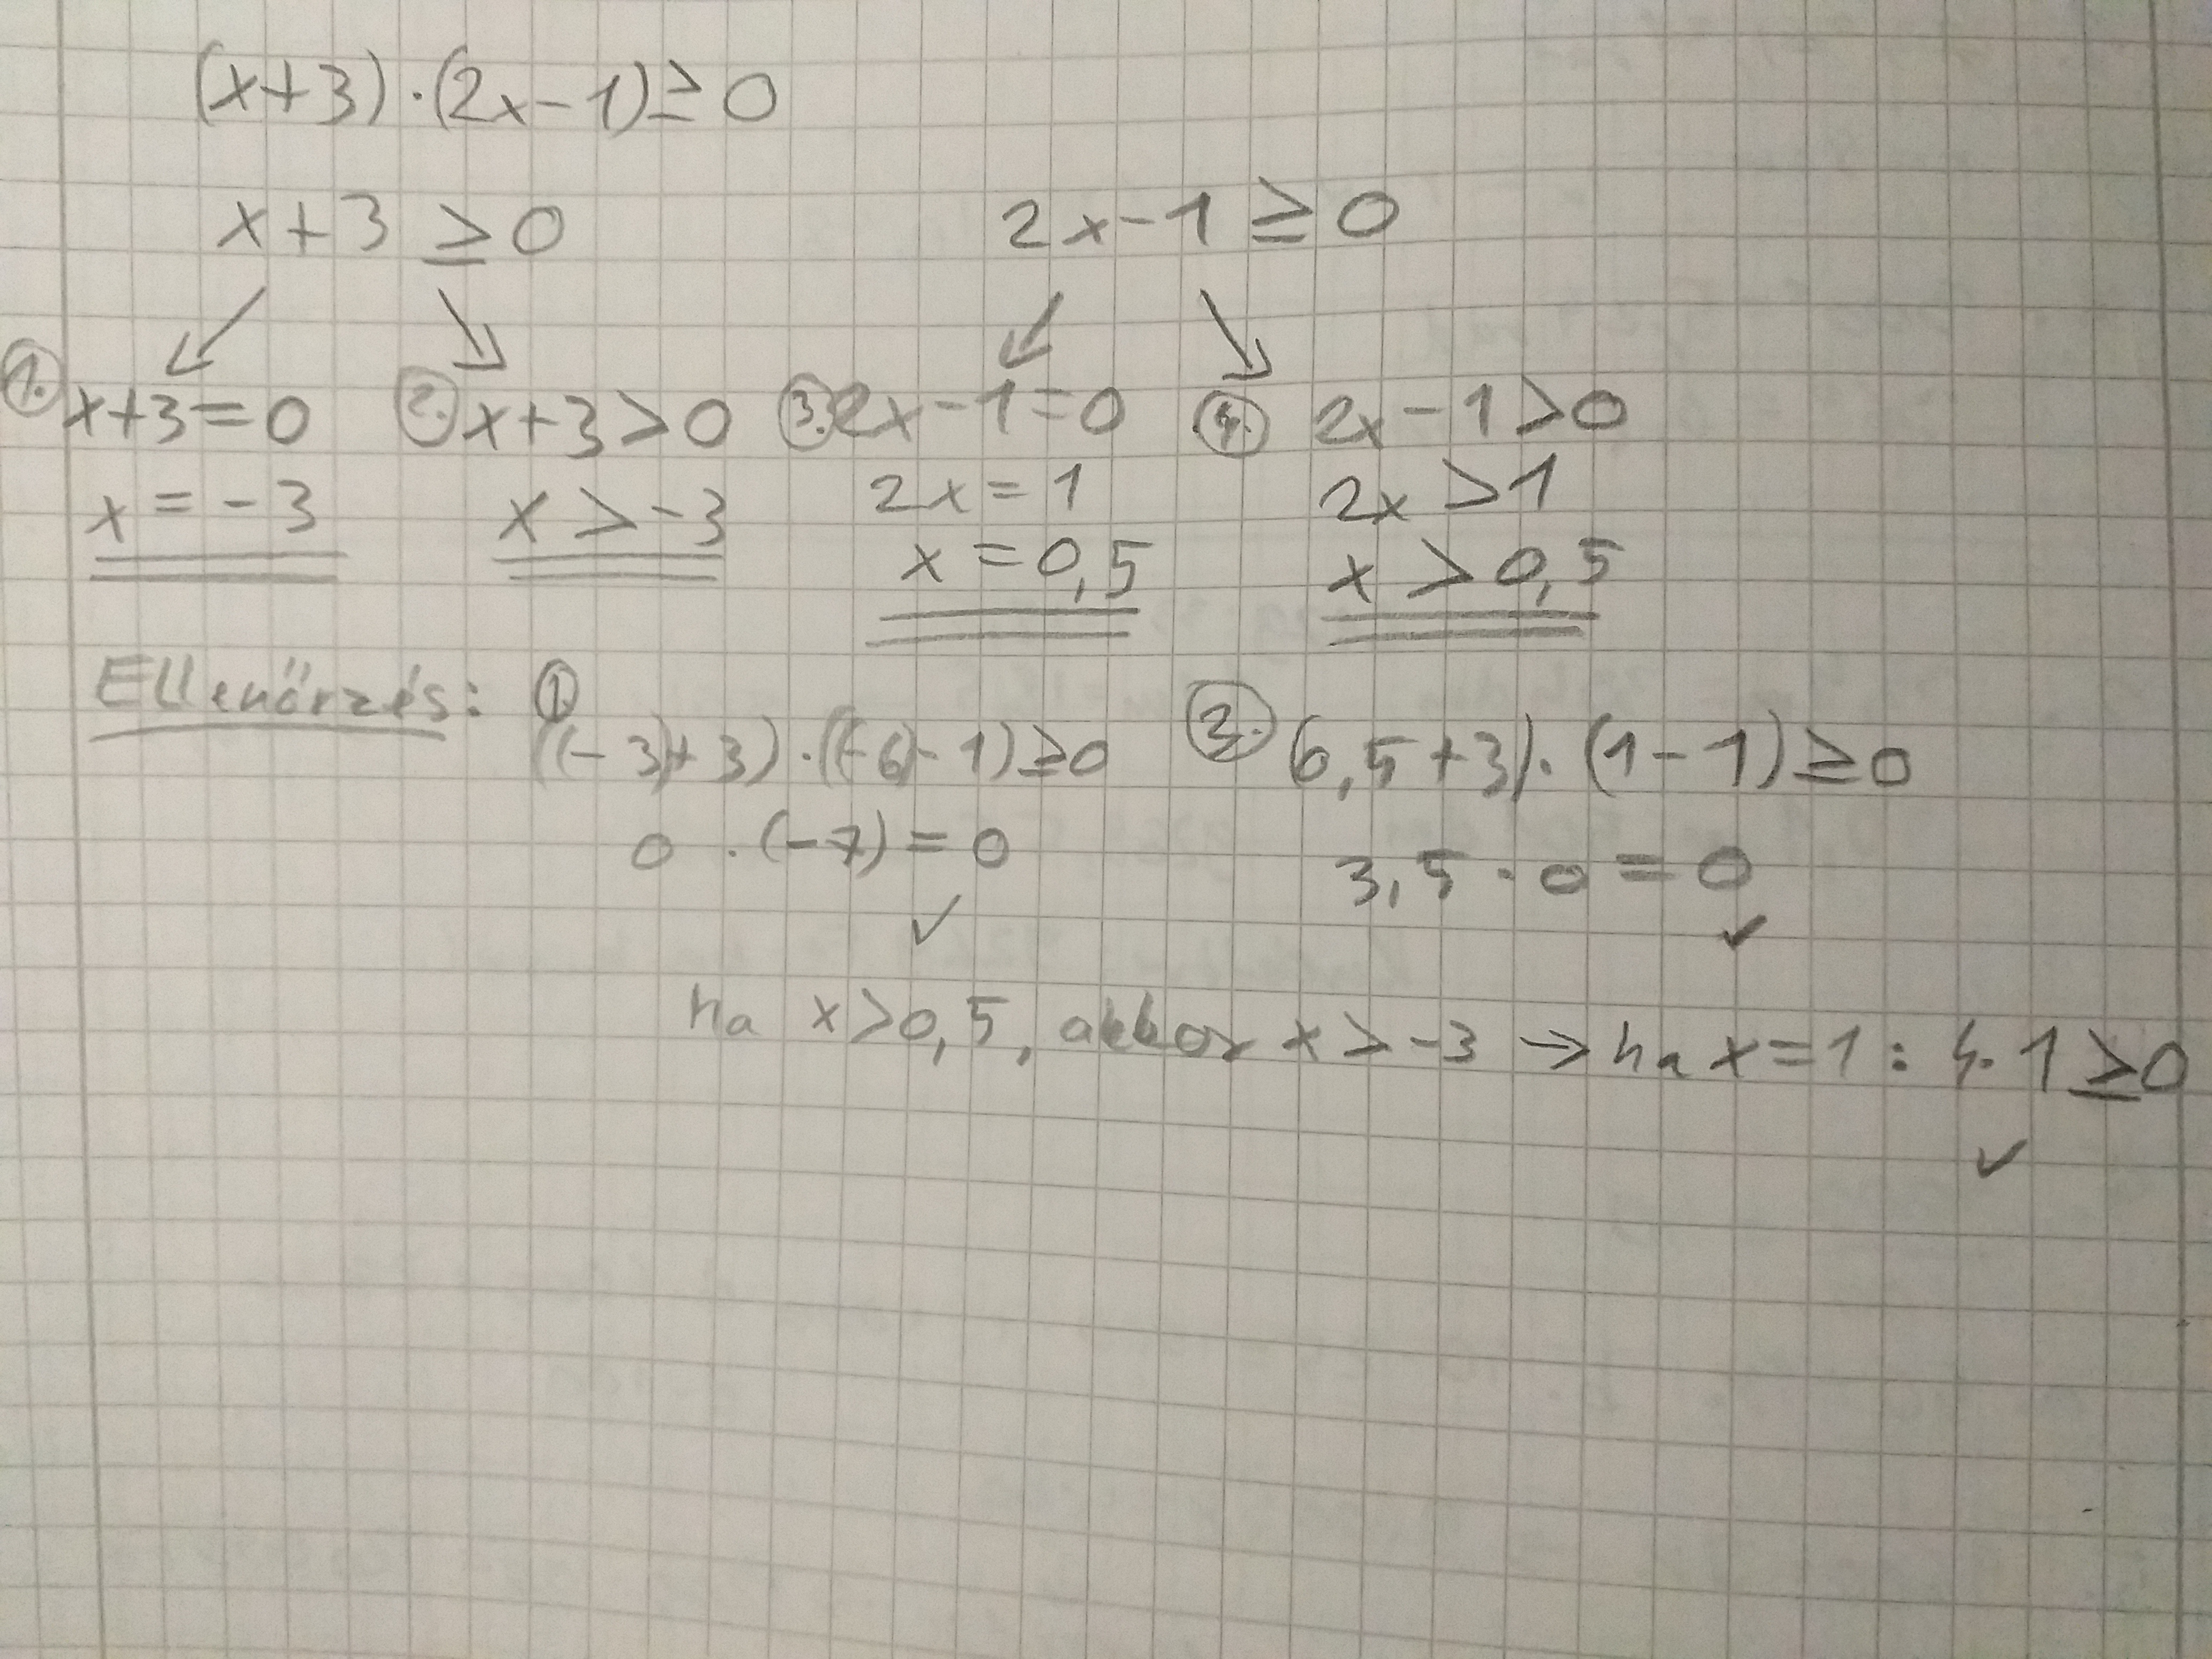 (x+3)·(2x-1)≥0
x+3 ≥0 2x-1 ≥0
1. x+3=0 2. x+3>0 3. 2x-1=0 4. 2x-1>0
x=-3 x>-3 2x=1 2x>1
x=0,5 x>0,5
Ellenőrzés: 1. ((-3)+3)·((-6)-1)≥0 3. (0,5+3)·(1-1)≥0
0·(-7)=0 3,5·0=0
✓ ✓
ha x>0,5, akkor x>-3 → ha x=1: 4·1≥0
✓